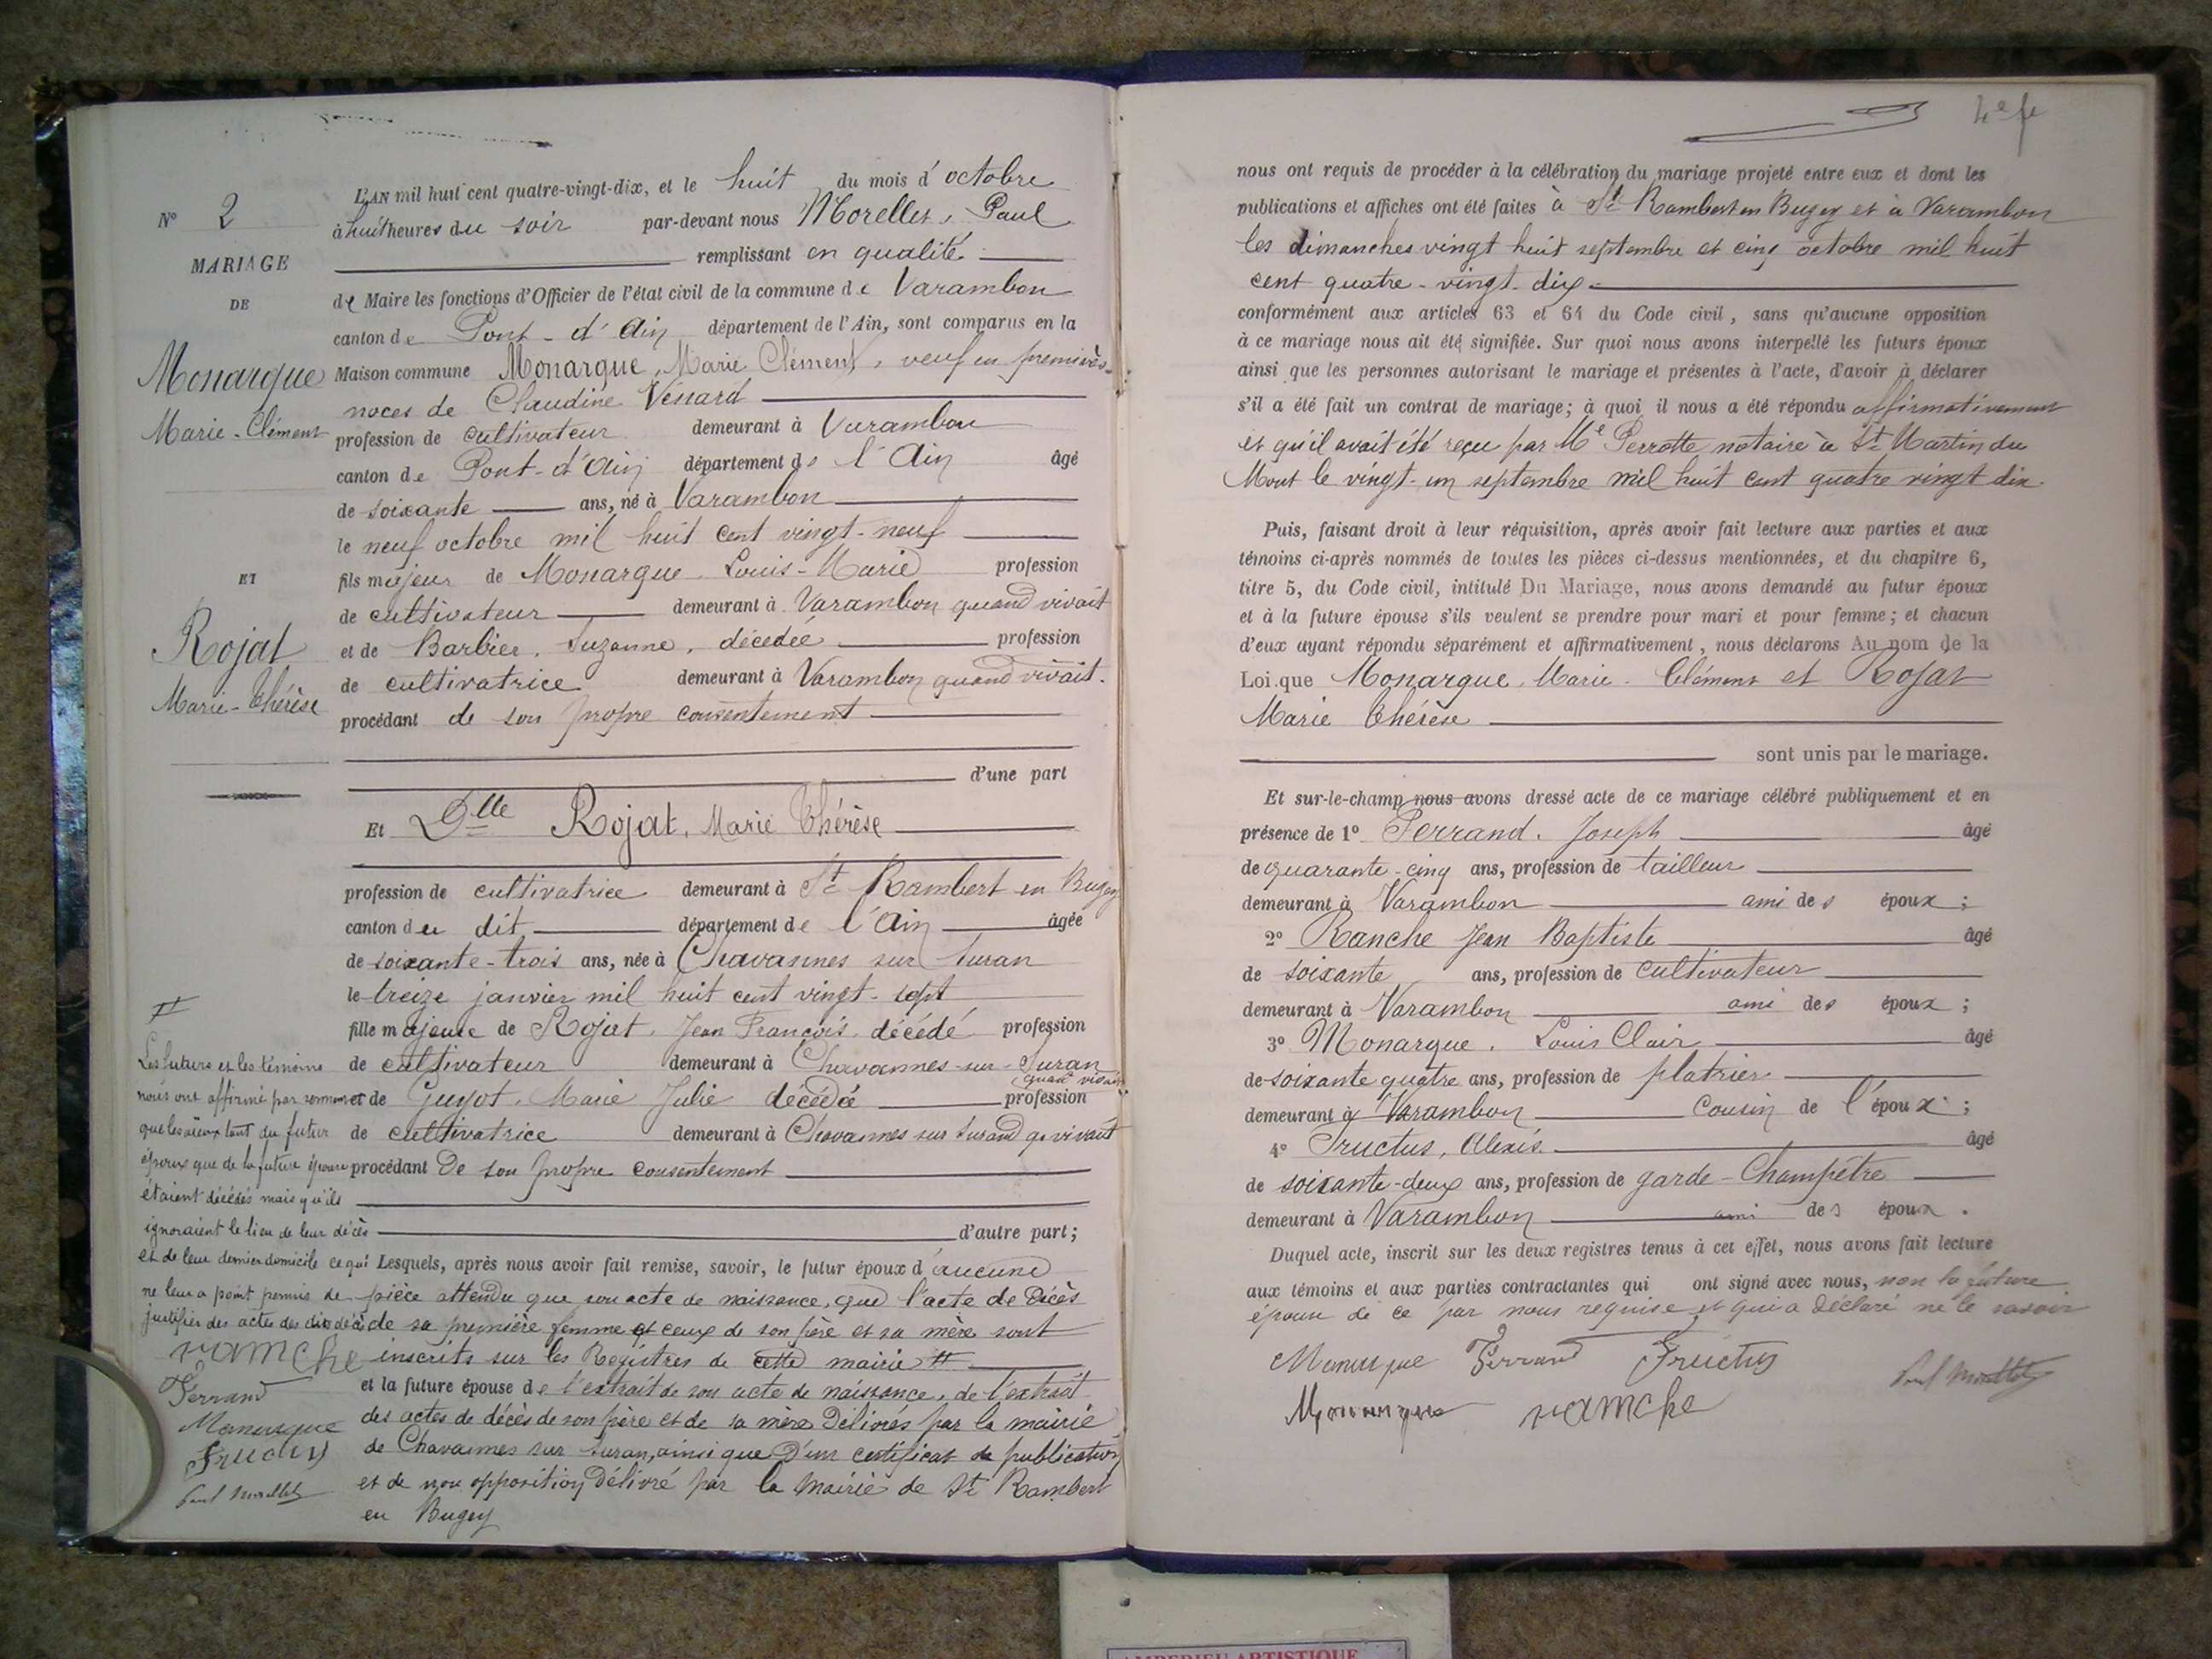 N° 2
MARIAGE
DE
Monarque
Marie-Clément
ET
Rojat
Marie-Thérèse
L'AN mil huit cent quatre-vingt-dix, et le huit du mois d'octobre
à huit heures du soir par-devant nous Morellet, Paul
remplissant en qualité
de Maire les fonctions d'Officier de l'état civil de la commune de Varambon
canton de Pont-d'Ain département de l'Ain, sont comparus en la
Maison commune Monarque, Marie Clément, veuf en premières
noces de Claudine Venard
profession de cultivateur demeurant à Varambon
canton de Pont-d'Ain département de l'Ain âgé
de soixante ans, né à Varambon
le neuf octobre mil huit cent vingt-neuf
fils majeur de Monarque Louis-Marie profession
de cultivateur demeurant à Varambon quand vivait
et de Barbier, Suzanne, décédée profession
de cultivatrice demeurant à Varambon quand vivait.
procédant de son propre consentement
d'une part
Et Dlle Rojat, Marie Thérèse
profession de cultivatrice demeurant à St Rambert en Bugey
canton du dit département de l'Ain âgée
de soixante-trois ans, née à Chavannes sur Suran
le treize janvier mil huit cent vingt-sept
fille majeure de Rojat, Jean François, décédé profession
de cultivateur demeurant à Chavannes-sur-Suran
quand vivait
et de Guyot, Marie Julie décédée profession
de cultivatrice demeurant à Chavannes sur Surand q. vivait
procédant De son propre consentement
d'autre part;
Lesquels, après nous avoir fait remise, savoir, le futur époux d'aucune
pièce attendu que son acte de naissance, que l'acte de décès
de sa première femme et ceux de son père et sa mère sont
inscrits sur les Registres de cette mairie #
et la future épouse de l'extrait de son acte de naissance, de l'extrait
des actes de décès de son père et de sa mère Délivrés par la mairie
de Chavannes sur Suran, ainsi que D'un certificat de publication
et de non opposition Délivré par la Mairie de St Rambert
en Bugey
#
Les futurs et les témoins
nous ont affirmé par serment
que les aïeux tant du futur
époux que de la future épouse
étaient décédés mais qu'ils
ignoraient le lieu de leur décès
et de leur dernier domicile ce qui
ne leur a point permis de
justifier des actes des dits décès
ranche
Ferrand
Monarque
Fructus
Paul Morellet
4e f
nous ont requis de procéder à la célébration du mariage projeté entre eux et dont les
publications et affiches ont été faites à St Rambert en Bugey et à Varambon
les dimanches vingt huit septembre et cinq octobre mil huit
cent quatre-vingt-dix
conformément aux articles 63 et 64 du Code civil, sans qu'aucune opposition
à ce mariage nous ait été signifiée. Sur quoi nous avons interpellé les futurs époux
ainsi que les personnes autorisant le mariage et présentes à l'acte, d'avoir à déclarer
s'il a été fait un contrat de mariage; à quoi il nous a été répondu affirmativement
et qu'il avait été reçu par Me Perrotte notaire à St Martin du
Mont le vingt-un septembre mil huit cent quatre vingt dix.
Puis, faisant droit à leur réquisition, après avoir fait lecture aux parties et aux
témoins ci-après nommés de toutes les pièces ci-dessus mentionnées, et du chapitre 6,
titre 5, du Code civil, intitulé Du Mariage, nous avons demandé au futur époux
et à la future épouse s'ils veulent se prendre pour mari et pour femme; et chacun
d'eux ayant répondu séparément et affirmativement, nous déclarons Au nom de la
Loi que Monarque, Marie-Clément et Rojat
Marie Thérèse
sont unis par le mariage.
Et sur-le-champ nous avons dressé acte de ce mariage célébré publiquement et en
présence de 1° Ferrand, Joseph âgé
de quarante-cinq ans, profession de tailleur
demeurant à Varambon ami des époux;
2° Ranche Jean Baptiste âgé
de soixante ans, profession de cultivateur
demeurant à Varambon ami des époux;
3° Monarque, Louis Clair âgé
de soixante quatre ans, profession de platrier
demeurant à Varambon cousin de l'époux;
4° Fructus, Alexis. âgé
de soixante-deux ans, profession de garde-Champêtre
demeurant à Varambon ami des époux.
Duquel acte, inscrit sur les deux registres tenus à cet effet, nous avons fait lecture
aux témoins et aux parties contractantes qui ont signé avec nous, non la future
épouse de ce par nous requise et qui a déclaré ne le savoir
Monarque Ferrand Fructus Paul Morellet
Monarque ranche
AMBERIEU ARTISTIQUE